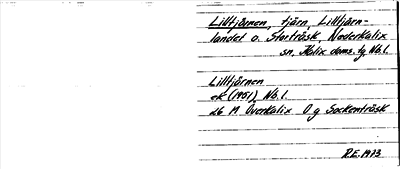 Lilltjärnen, tjärn, Lilltjärn-
landet o. Storträsk, Nederkalix
sn, Kalix doms. tg Nb. l.
Lilltjärnen
ek (1951) Nb. l.
26 M Överkalix O g Sockenträsk
R.E. 1973